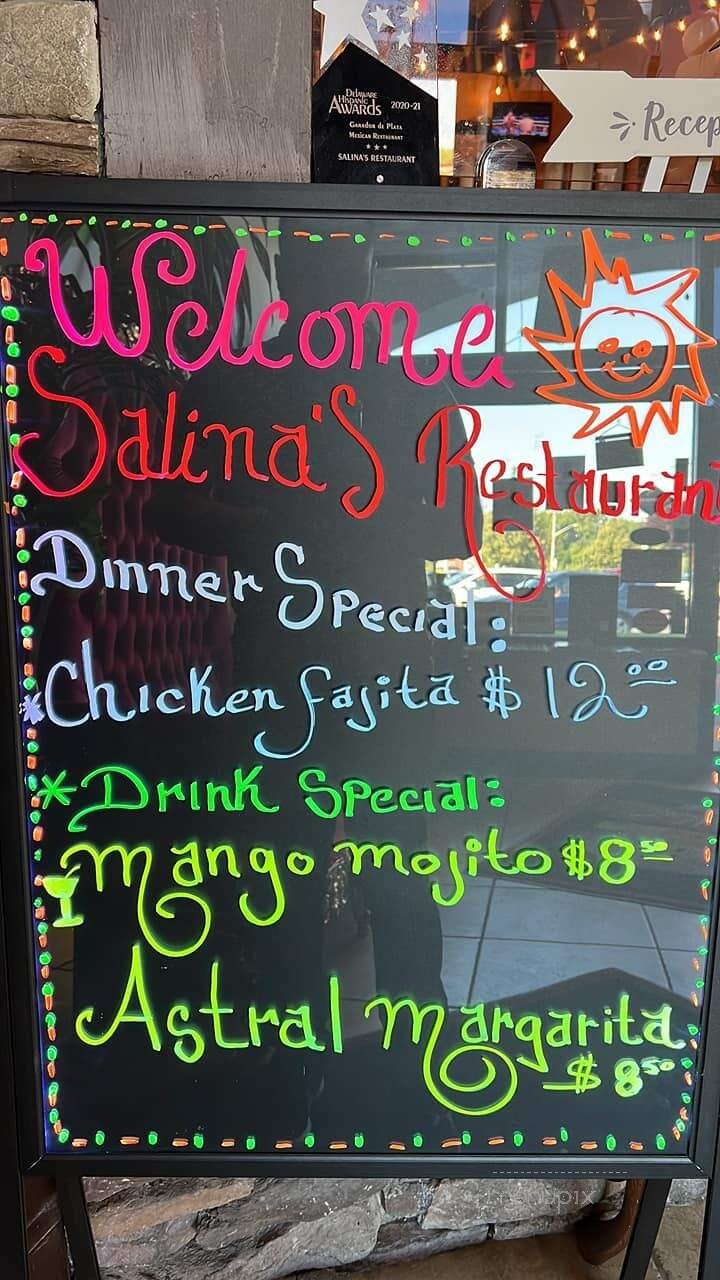 Delaware
Hispanic
Awards 2020-21
Ganador de Plata
Mexican Restaurant
SALINA'S RESTAURANT
Recep
Welcome
Salina's Restaurant
Dinner Special:
*Chicken fajita $12.00
*Drink Special:
mango mojito $8.50
Astral margarita
$8.50